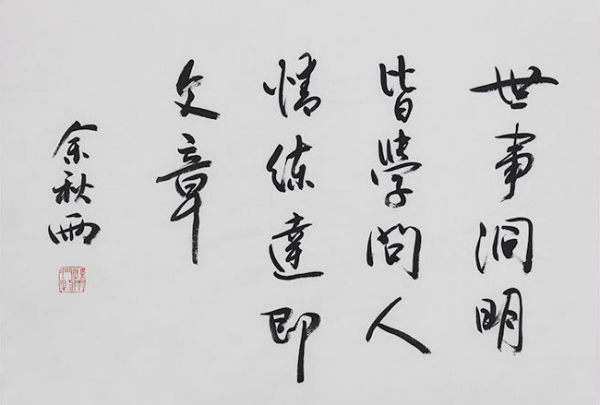 世事洞明
皆學問人
情练達即
文章
余秋雨